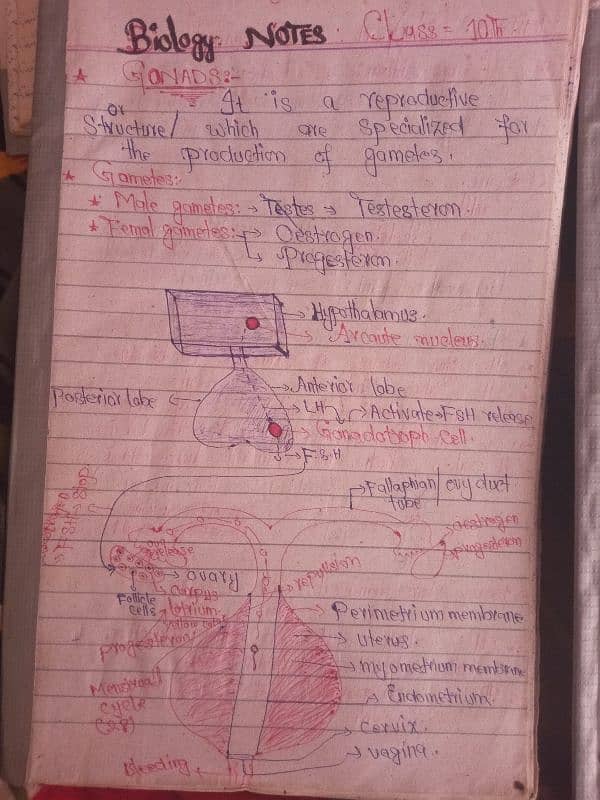 Biology NOTES. Class = 10th.
GONADS:-
It is a reproductive
or
Structure/ which are specialized for
the production of gametes.
Gametes:-
Male gametes:→ Testes → Testesteron.
Femal gametes:→ Oestrogen.
Progesteron.
Hypothalamus.
Arcaute nucleus.
Anterior lobe
Posterior lobe
LH Activate→FSH release
Gonadotroph cell.
F.S.H
Fallaphian/ ovy duct
tube
oestrogen
progesteron
release
ovary
repulsion
Follicle
cells
corpus
lotrium
yellow
Perimetrium membrane
progesteron
uterus.
myometrium membrane
Menstrual
cycle
(28)
Endometrium.
Cervix.
vagina.
bleeding